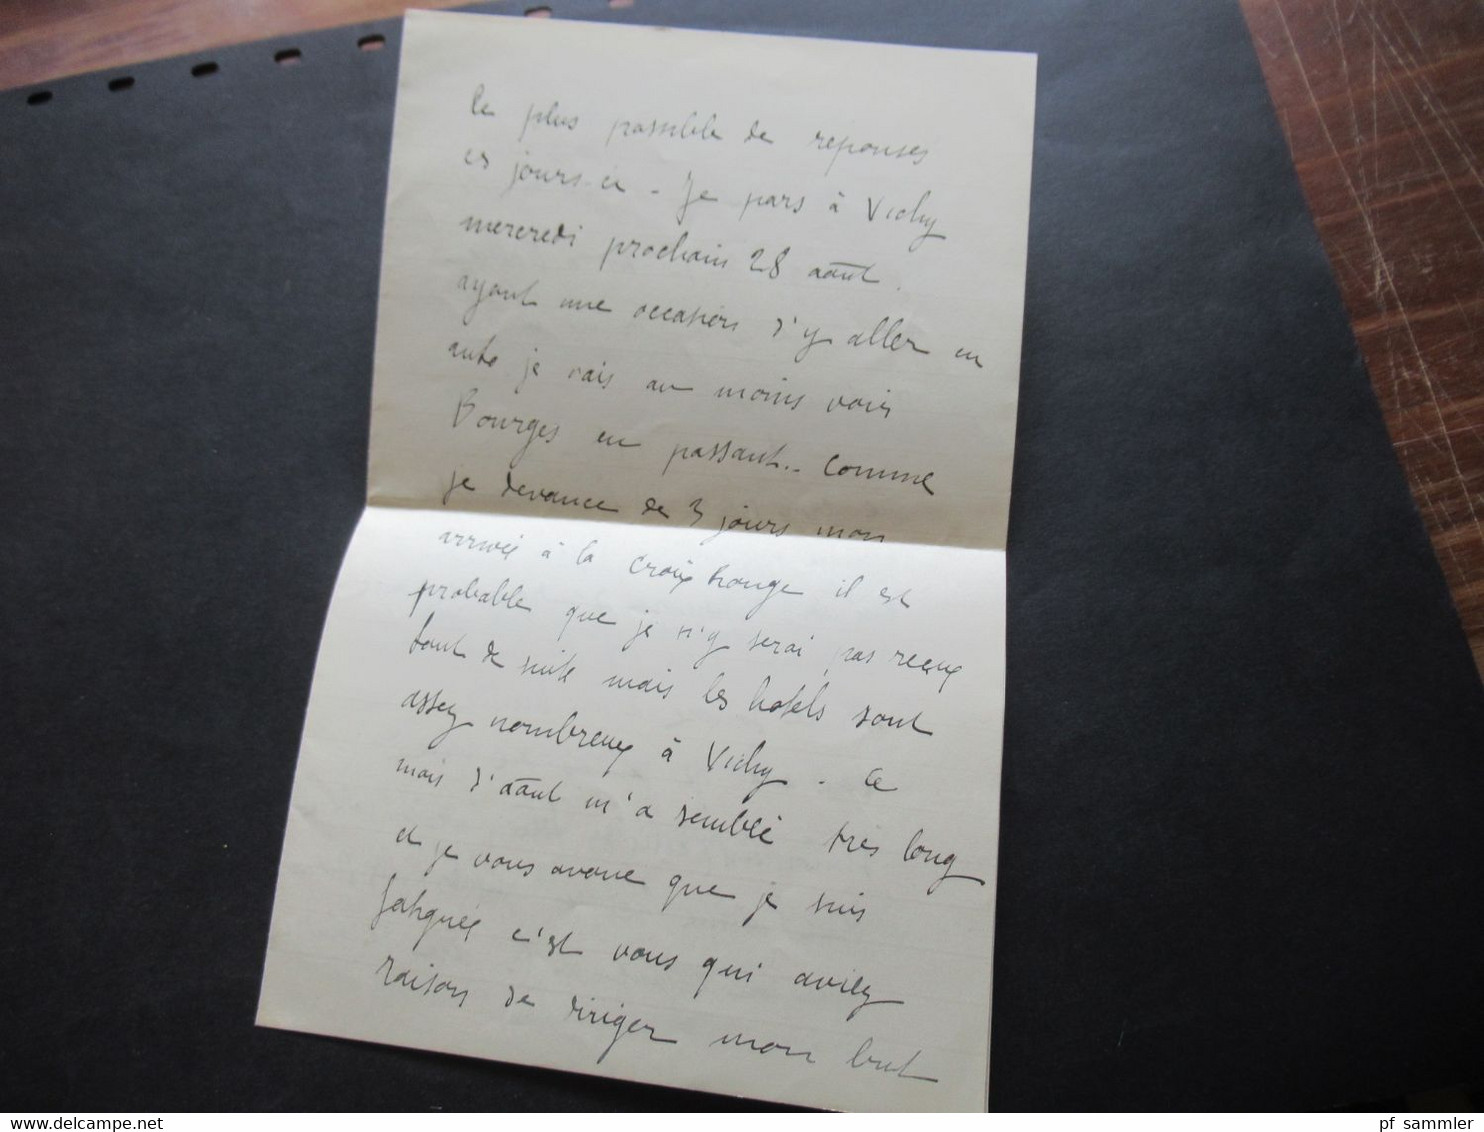 le plus possible de réponses
ces jours-ci - Je pars à Vichy
mercredi prochain 28 août.
ayant une occasion d'y aller en
auto je vais au moins voir
Bourges en passant.. Comme
je devance de 3 jours mon
arrivée à la croix Rouge il est
probable que je n'y serai pas reçue
tout de suite mais les hotels sont
assez nombreux à Vichy - Ce
mois d'août m'a semblé très long
et je vous avoue que je suis
fatiguée c'est vous qui aviez
raison de diriger mon but
pf sammler